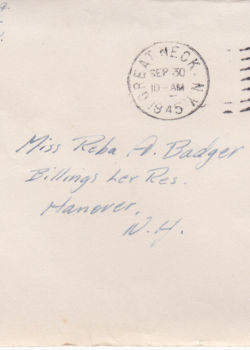 GREAT NECK, N.Y.
SEP 30
10-AM
1945
Miss Reba A. Badger
Billings Lee Res.
Hanover,
N.H.